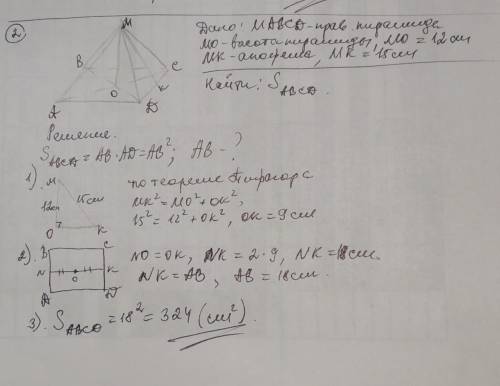 2
Дано: MABCD - прав. пирамида
MO - высота пирамиды, MO = 12 см
MK - апофема, MK = 15 см
Найти: S ABCD.
M
B
C
K
O
A
D
Решение.
S ABCD = AB · AD = AB²; AB - ?
1)
M
12см
15см
O
K
по теореме Пифагора
MK² = MO² + OK²,
15² = 12² + OK², OK = 9 см
2).
B
C
N
O
K
A
D
NO = OK, NK = 2 · 9, NK = 18 см.
NK = AB, AB = 18 см.
3). S ABCD = 18² = 324 (см²).